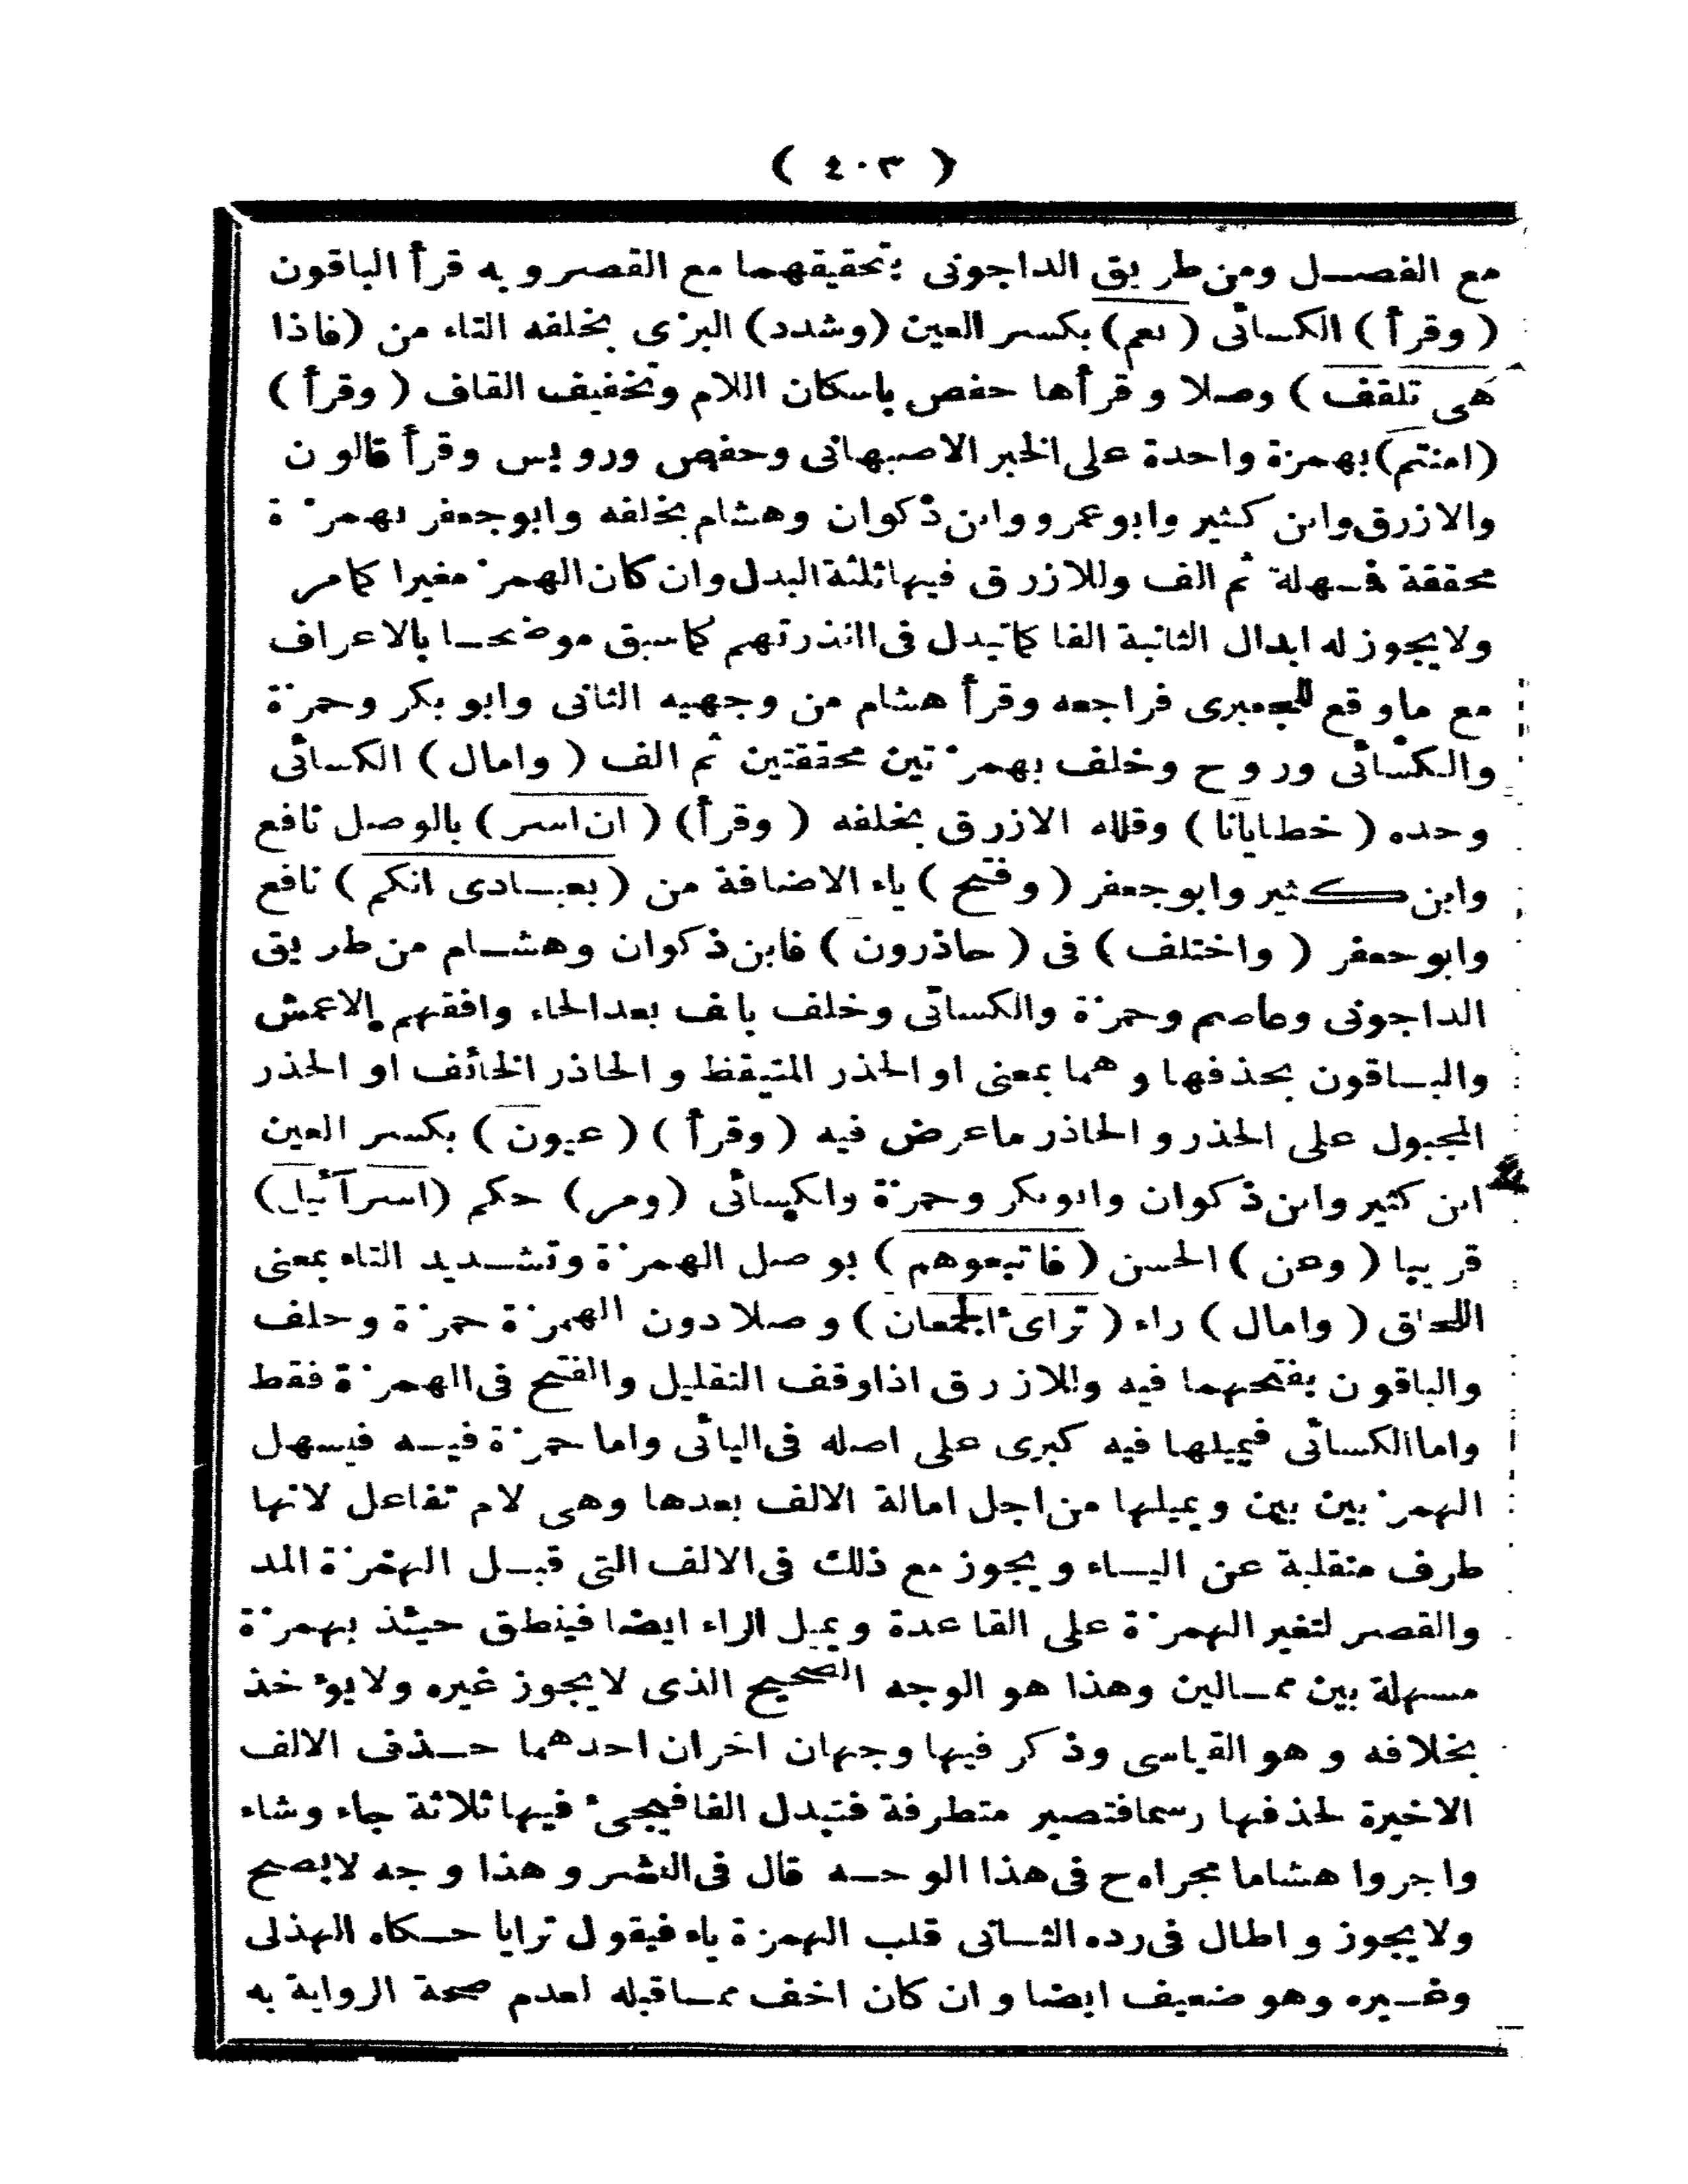 ( ٤٠٣ )
مع الفصــل ومن طريق الداجونى بتحقيقهما مع القصر وبه قرأ الباقون
( وقرأ ) الكسائى ( نعم ) بكسر العين (وشدد) البزى بخلفه التاء من (فاذا
هى تلقف ) وصلا وقرأها حفص باسكان اللام وتخفيف القاف ( وقرأ )
(امنتم) بهمزة واحدة على الخبر الاصبهانى وحفص ورويس وقرأ قالون
والازرق وابن كثير وابو عمرو وابن ذكوان وهشام بخلفه وابو جعفر بهمزة
محققة فسهلة ثم الف وللازرق فيها ثلثة البدل وان كان الهمز مغيرا كما مر
ولا يجوز له ابدال الثانية الفا كما تبدل فى اانذرتهم كما سبق موضحا بالاعراف
مع ما وقع للجعبرى فراجعه وقرأ هشام من وجهيه الثانى وابو بكر وحمزة
والكسائى وروح وخلف بهمزتين محققتين ثم الف ( وامال ) الكسائى
وحده ( خطايانا ) وقلله الازرق بخلفه ( وقرأ) ( ان اسر ) بالوصل نافع
وابن كثير وابو جعفر ( وفتح ) ياء الاضافة من ( بعبادى انكم ) نافع
وابو جعفر ( واختلف ) فى ( حاذرون ) فابن ذكوان وهشام من طريق
الداجونى وعاصم وحمزة والكسائى وخلف بالف بعد الحاء وافقهم الاعمش
والباقون بحذفها وهما بمعنى او الحذر المتيقظ والحاذر الخائف او الحذر
المجبول على الحذر والحاذر ما عرض فيه ( وقرأ ) ( عيون ) بكسر العين
ابن كثير وابن ذكوان وابو بكر وحمزة والكسائى (ومر) حكم (اسرآئيل)
قريبا ( وعن ) الحسن ( فاتبعوهم ) بوصل الهمزة وتشديد التاء بمعنى
اللحاق ( وامال ) راء ( ترائ الجمعان ) وصلا دون الهمزة حمزة وخلف
والباقون بفتحهما فيه وللازرق اذا وقف التقليل والفتح فى الهمزة فقط
واما الكسائى فيميلها فيه كبرى على اصله فى اليائى واما حمزة فيه فيسهل
الهمز بين بين ويميلها من اجل امالة الالف بعدها وهى لام تفاعل لانها
طرف منقلبة عن الياء ويجوز مع ذلك فى الالف التى قبل الهمزة المد
والقصر لتغير الهمزة على القاعدة ويميل الراء ايضا فينطق حينئذ بهمزة
مسهلة بين ممالين وهذا هو الوجه الصحيح الذى لا يجوز غيره ولا يؤخذ
بخلافه وهو القياسى وذكر فيها وجهان اخران احدهما حذف الالف
الاخيرة لحذفها رسما فتصير متطرفة فتبدل الفا فيجئ فيها ثلاثة جاء وشاء
واجروا هشاما مجراه ح فى هذا الوجه قال فى النشر وهذا وجه لا يصح
ولا يجوز واطال فى رده الثانى قلب الهمزة ياء فيقول ترايا حكاه الهذلى
وغيره وهو ضعيف ايضا وان كان اخف مما قبله لعدم صحة الرواية به